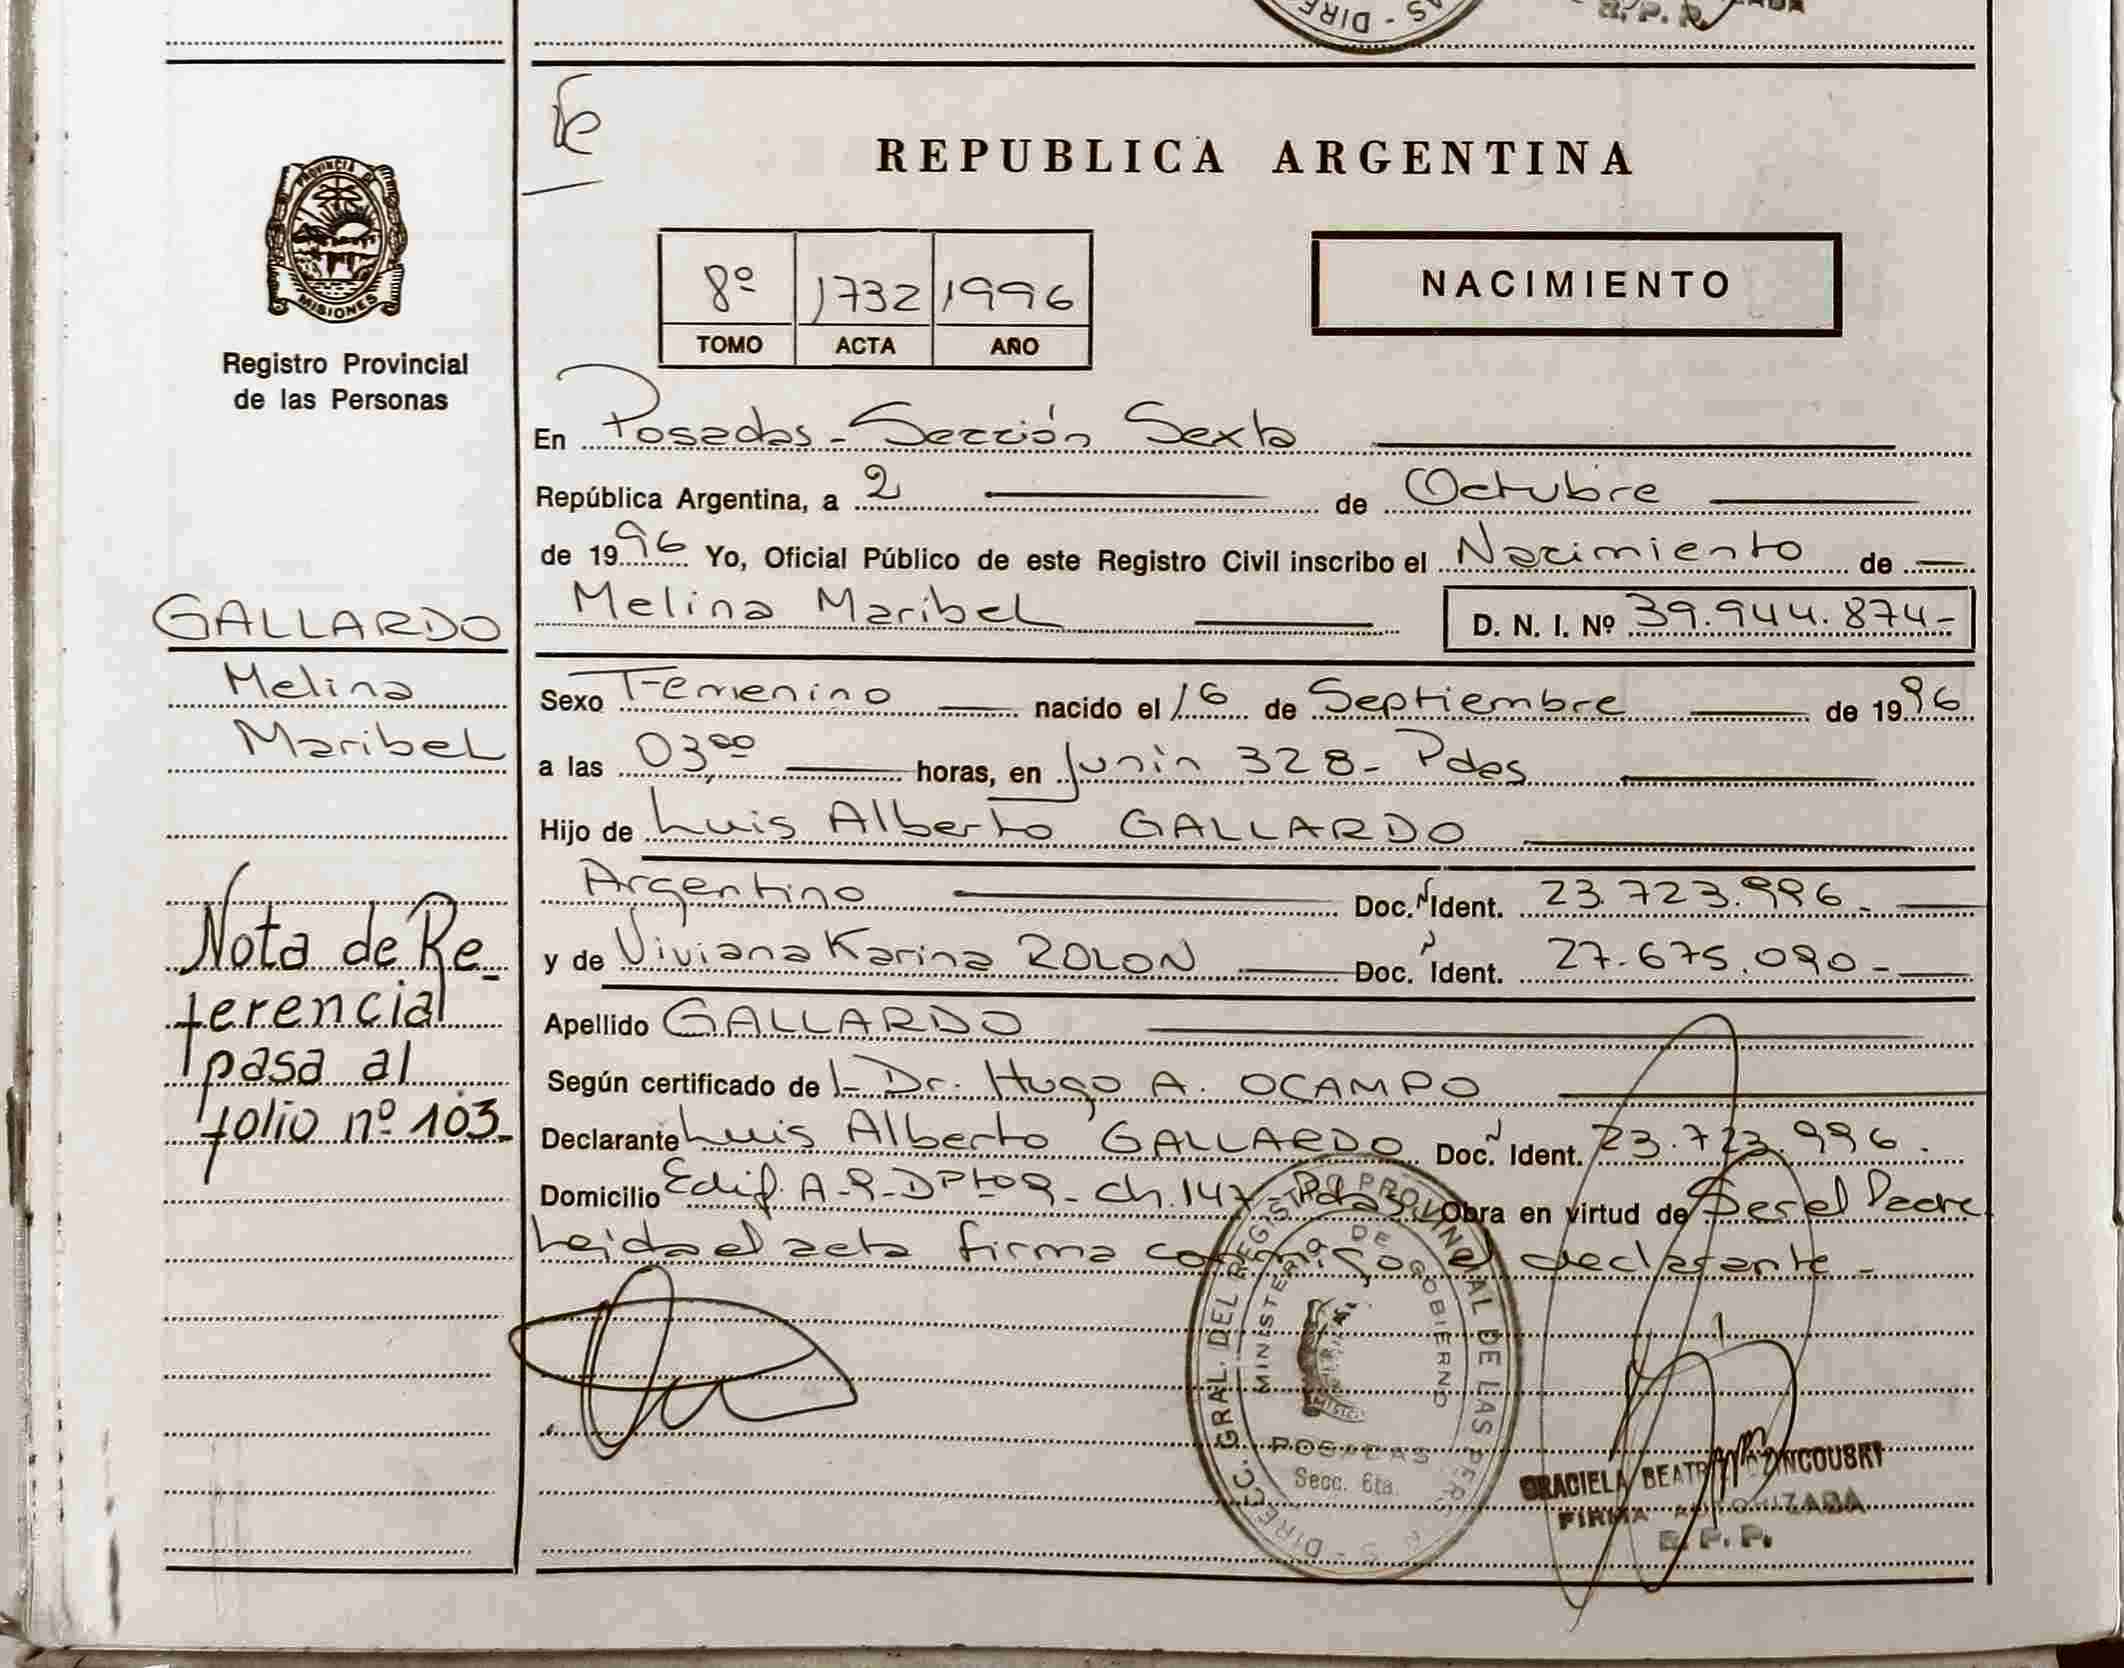 PROVINCIA DE
MISIONES
Registro Provincial
de las Personas
GALLARDO
Melina
Maribel
Nota de Re-
ferencial
pasa al
folio nº 103-
REPUBLICA ARGENTINA
8º 1732 1996
TOMO ACTA AÑO
NACIMIENTO
En Posadas - Sección Sexta
República Argentina, a 2 de Octubre
de 1996 Yo, Oficial Público de este Registro Civil inscribo el Nacimiento de
Melina Maribel D. N. I. Nº 39.944.874-
Sexo Femenino nacido el 16 de Septiembre de 1996
a las 03,00 horas, en Junín 328- Pdas
Hijo de Luis Alberto GALLARDO
Argentino Doc. Ident. 23.723.996-
y de Viviana Karina ROLON Doc. Ident. 27.675.090-
Apellido GALLARDO
Según certificado de l- Dr. Hugo A. OCAMPO
Declarante Luis Alberto GALLARDO Doc. Ident. 23.723.996.
Domicilio Edif. A-9-Dpto 9- ch. 147- Pdas. Obra en virtud de Ser el Padre
Leida el acta firma conmigo el declarante-
DIRECC. GRAL. DEL REGISTRO PROVINCIAL DE LAS PERS
MINISTERIO DE GOBIERNO
POSADAS
Secc. 6ta.
GRACIELA
FIRMA AUTORIZADA
R. P. P.